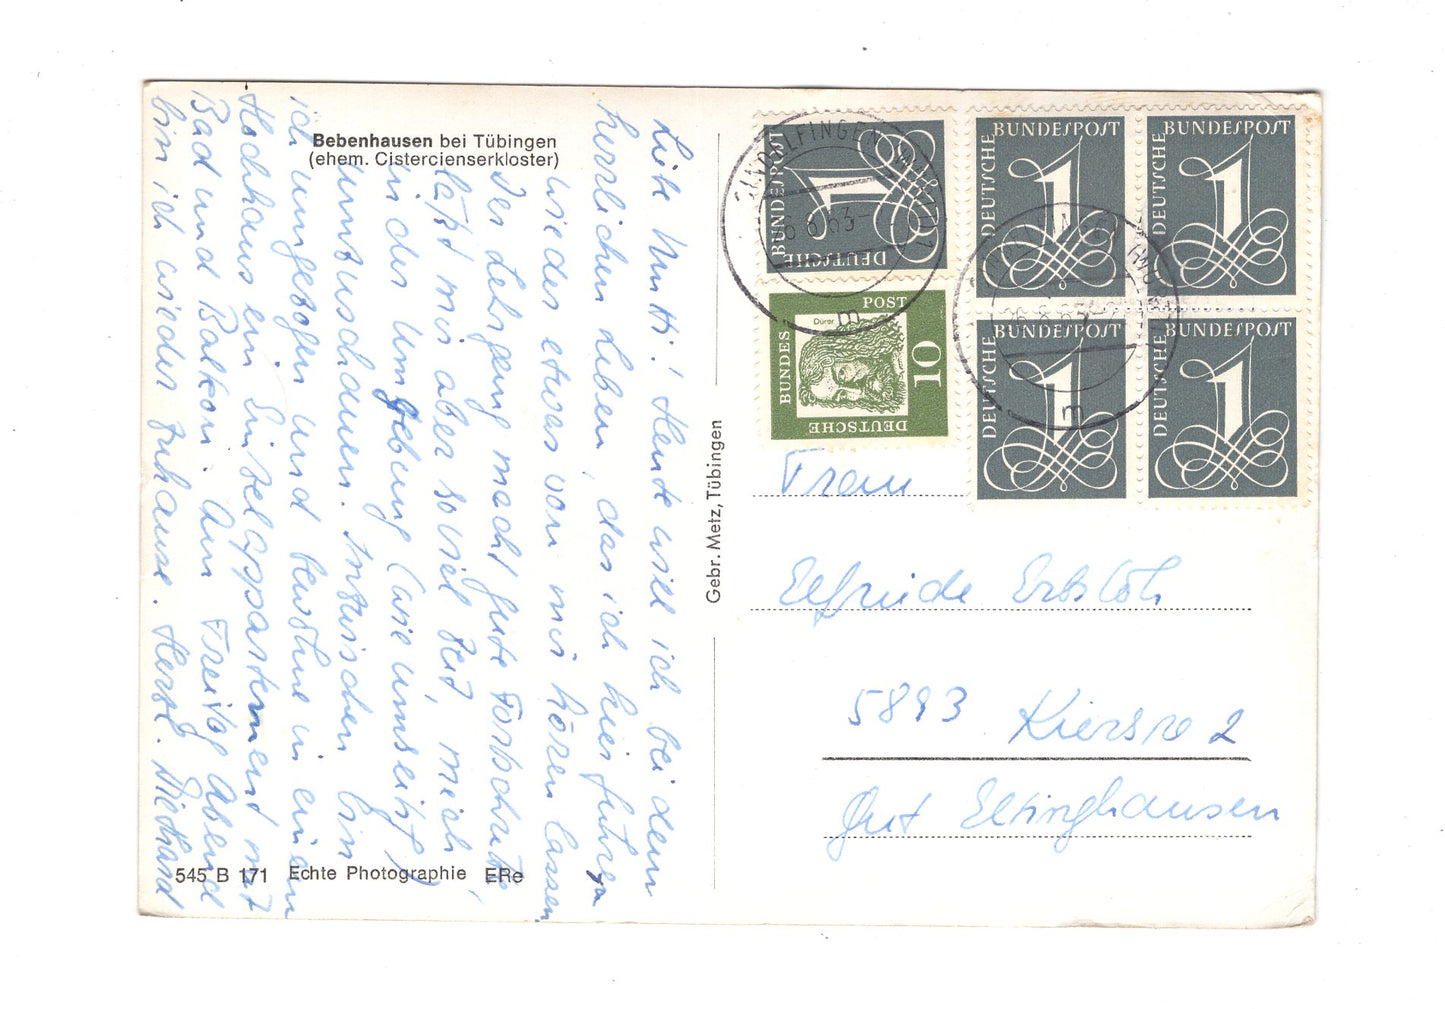 Bebenhausen bei Tübingen
(ehem. Cistercienserkloster)
Liebe Mutti! Heute will ich bei dem
herrlichen Leben, das ich hier führe,
wieder etwas von mir hören lassen
Der Lehrgang macht gute Fortschritte,
läßt mir aber soviel Zeit, mich
in der Umgebung (wie umseits!)
umzuschauen. Inzwischen bin
ich umgezogen und bewohne in einem
Hochhaus ein Einzelappartement mit
Bad und Balkon. Am Freitag Abend
bin ich wieder zuhause. Herzl. Diethard
545 B 171 Echte Photographie ERe
Gebr. Metz, Tübingen
SINDELFINGEN (WÜRTT) 1
6.8.63
m
DEUTSCHE BUNDESPOST
1
DEUTSCHE BUNDESPOST
1
DEUTSCHE BUNDESPOST
1
DEUTSCHE BUNDESPOST
1
DEUTSCHE BUNDESPOST
1
6.8.63
m
DEUTSCHE BUNDES POST
Dürer
10
Frau
Elfriede Erbslöh
5893 Kierspe 2
Gut Eltinghausen